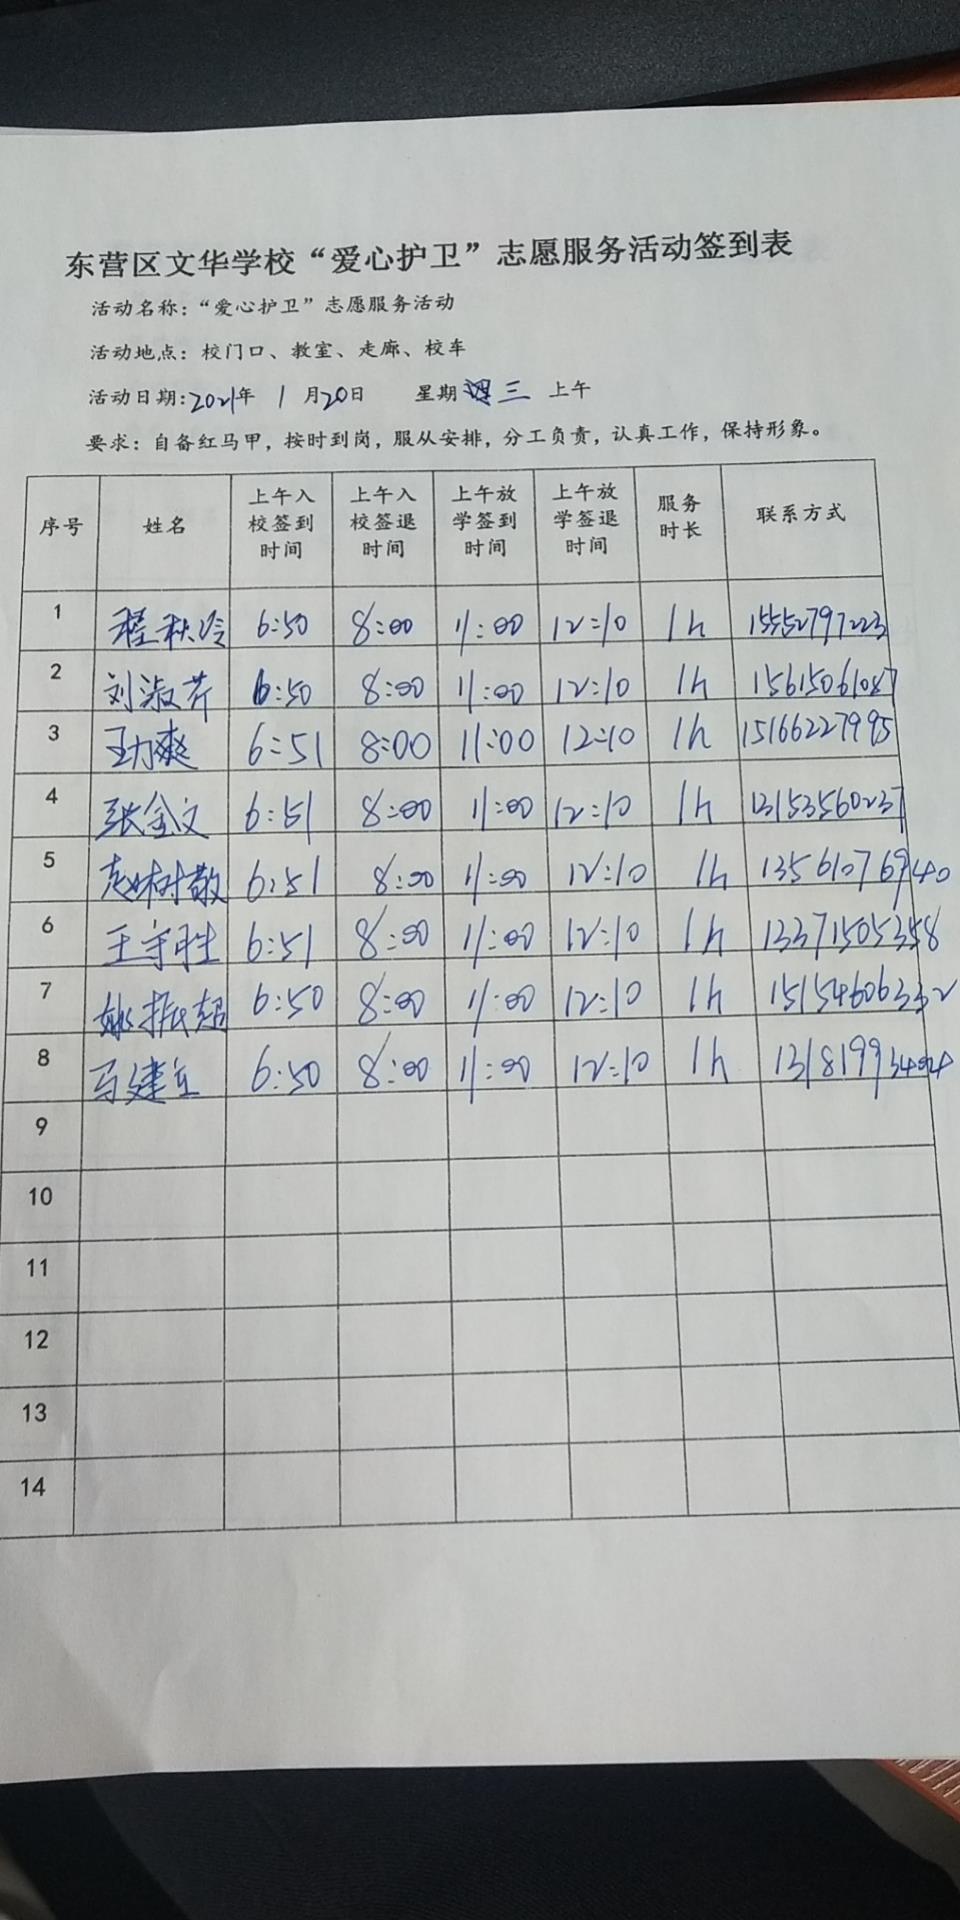 东营区文华学校“爱心护卫”志愿服务活动签到表
活动名称：“爱心护卫”志愿服务活动
活动地点：校门口、教室、走廊、校车
活动日期：2021年 1月20日 星期三 上午
要求：自备红马甲，按时到岗，服从安排，分工负责，认真工作，保持形象。
序号 姓名 上午入校签到时间 上午入校签退时间 上午放学签到时间 上午放学签退时间 服务时长 联系方式
1 程秋冷 6:50 8:00 11:00 12:10 1h 15552797223
2 刘淑芹 6:50 8:00 11:00 12:10 1h 15615061087
3 王力爽 6:51 8:00 11:00 12:10 1h 15166227995
4 张全文 6:51 8:00 11:00 12:10 1h 13153560237
5 赵树敬 6:51 8:00 11:00 12:10 1h 13561076940
6 王守胜 6:51 8:00 11:00 12:10 1h 13371505358
7 姚振超 6:50 8:00 11:00 12:10 1h 15154606332
8 马建立 6:50 8:00 11:00 12:10 1h
9
10
11
12
13
14